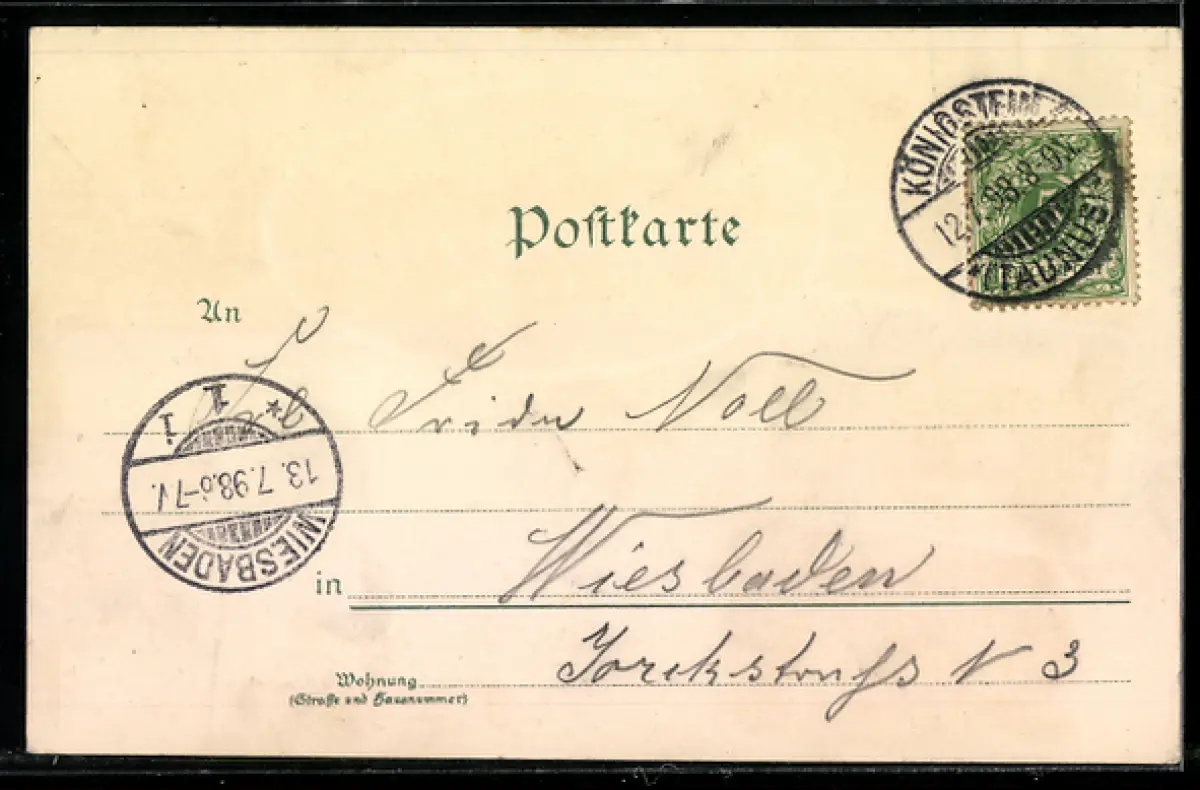 KÖNIGSTEIN
12.7.98.8-9V.
*(TAUNUS)*
Postkarte
An
Frida Noll
1
* 1
13.7.98.6-7V.
WIESBADEN
in Wiesbaden
Wohnung Yorckstraße N 3
(Straße und Hausnummer)